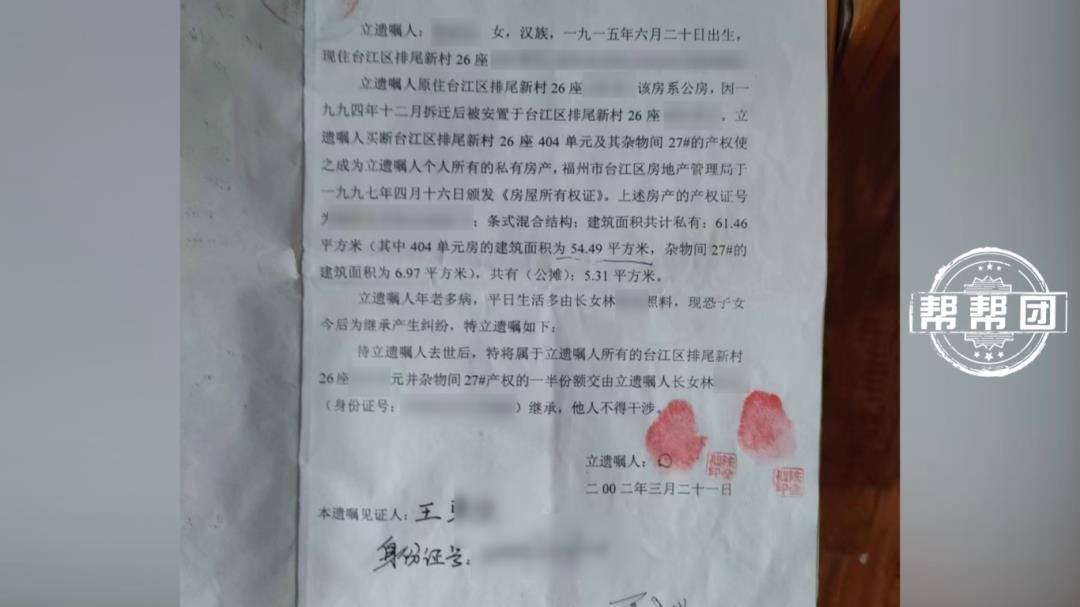 立遗嘱人： 女，汉族，一九一五年六月二十日出生，
现住台江区排尾新村 26 座
立遗嘱人原住台江区排尾新村 26 座 该房系公房，因一
九九四年十二月拆迁后被安置于台江区排尾新村 26 座 ，立
遗嘱人买断台江区排尾新村 26 座 404 单元及其杂物间 27#的产权使
之成为立遗嘱人个人所有的私有房产，福州市台江区房地产管理局于
一九九七年四月十六日颁发《房屋所有权证》。上述房产的产权证号
为 ；条式混合结构；建筑面积共计私有：61.46
平方米（其中 404 单元房的建筑面积为 54.49 平方米，杂物间 27#的
建筑面积为 6.97 平方米），共有（公摊）：5.31 平方米。
立遗嘱人年老多病，平日生活多由长女林 照料，现恐子女
今后为继承产生纠纷，特立遗嘱如下：
待立遗嘱人去世后，特将属于立遗嘱人所有的台江区排尾新村
26 座 元并杂物间 27#产权的一半份额交由立遗嘱人长女林
（身份证号： ）继承，他人不得干涉。
立遗嘱人：
二 00 二年三月二十一日
本遗嘱见证人：王
身份证号：
帮帮团